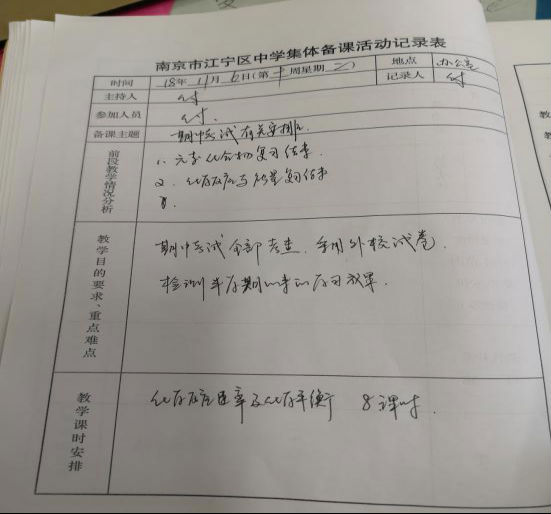 南京市江宁区中学集体备课活动记录表
时间 18年 11月 6日(第十周星期二) 地点 办公室
主持人 记录人
参加人员
备课主题 期中考试有关安排.
前段教学情况分析
1. 元素化合物复习结束.
2. 化学反应与能量复习结束
教学目的要求、重点难点
期中考试全部考查, 采用外校试卷.
检测半学期以来的学习效果.
教学课时安排
化学反应速率及化学平衡 8课时.